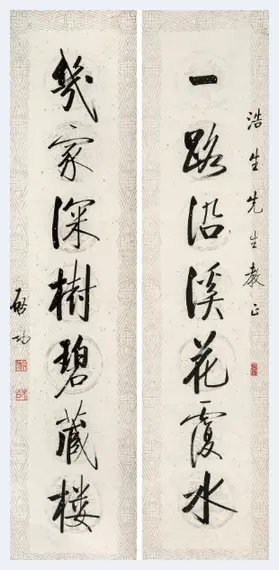 浩生先生教正
一路沿溪花覆水
几家深樹碧藏楼
启功